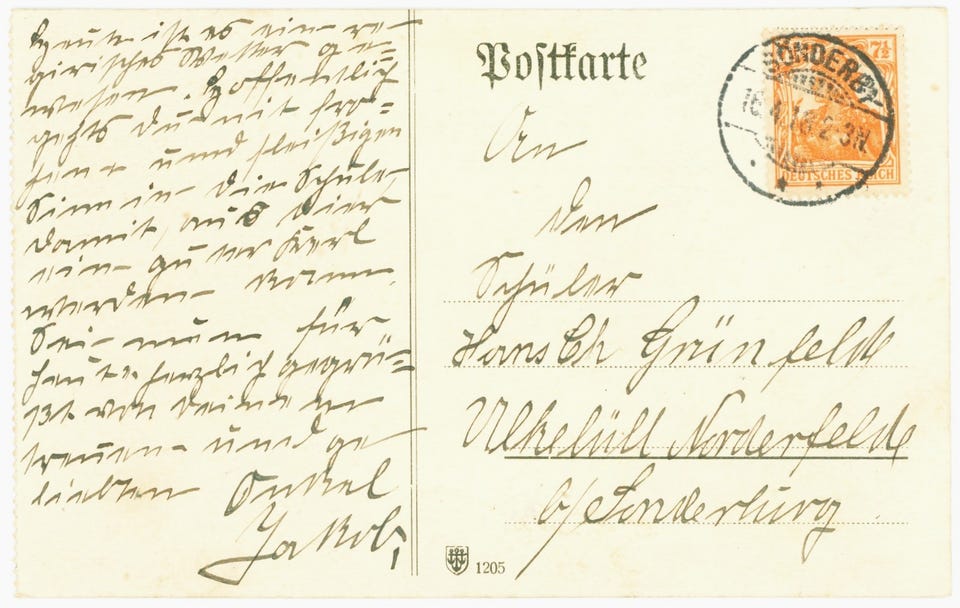 Heute ist es ein re-
girisches Wetter ge-
wesen. Hoffentlich
gehts Du mit fro-
hen und fleißigen
Sinn in die Schule,
damit aus Dier
ein guter Kerl
werden kann.
Sei nun für
heute herzlich gegrü-
ßt von deinem
treuen und ge
liebten Onkel
Jakob,
Postkarte
SONDERBURG
16.4.18.2-3N.
7½
DEUTSCHES REICH
An
den
Schüler
Hans Ch Grünfeldt
Ulkebüll Norderfeldt
b/Sonderburg
1205